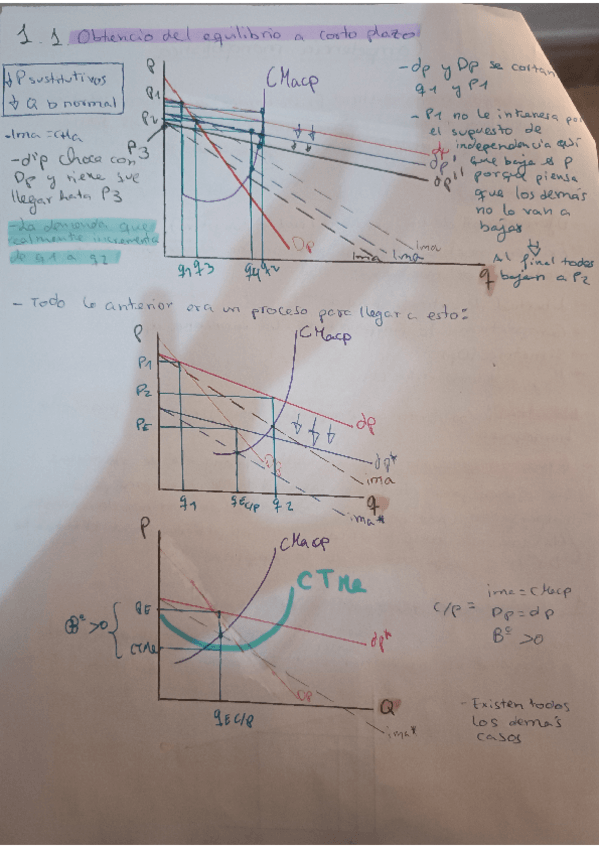 1.1 Obtención del equilibrio a corto plazo
↓ P sustitutivos
↓ Q b normal
- Ima = CMa
- d'p choca con
Dp y tiene que
llegar hata P3
- La demanda que
realmente incrementa
de q1 a q2
P
q1
P2
P3
CMacp
dp
dp'
dp''
Dp
Ima
Ima
Ima
q1 q3 q4 q2
q
- dp y Dp se cortan
q1 y P1
- P1 no le interesa por
el supuesto de
independencia así
que baja el P
porque piensa
que los demás
no lo van a
bajar
Al final todos
bajan a P2
- Todo lo anterior era un proceso para llegar a esto:
P
P1
P2
PE
CMacp
dp
dp*
Dp
ima
ima*
q1 qEC/P q2
q
P
CMacp
CTMe
qE
CTMe
Bº >0
dp*
Dp
ima*
qEC/P
Q
c/p = ima = CMacp
Dp = dp
Bº >0
- Existen todos
los demás
casos